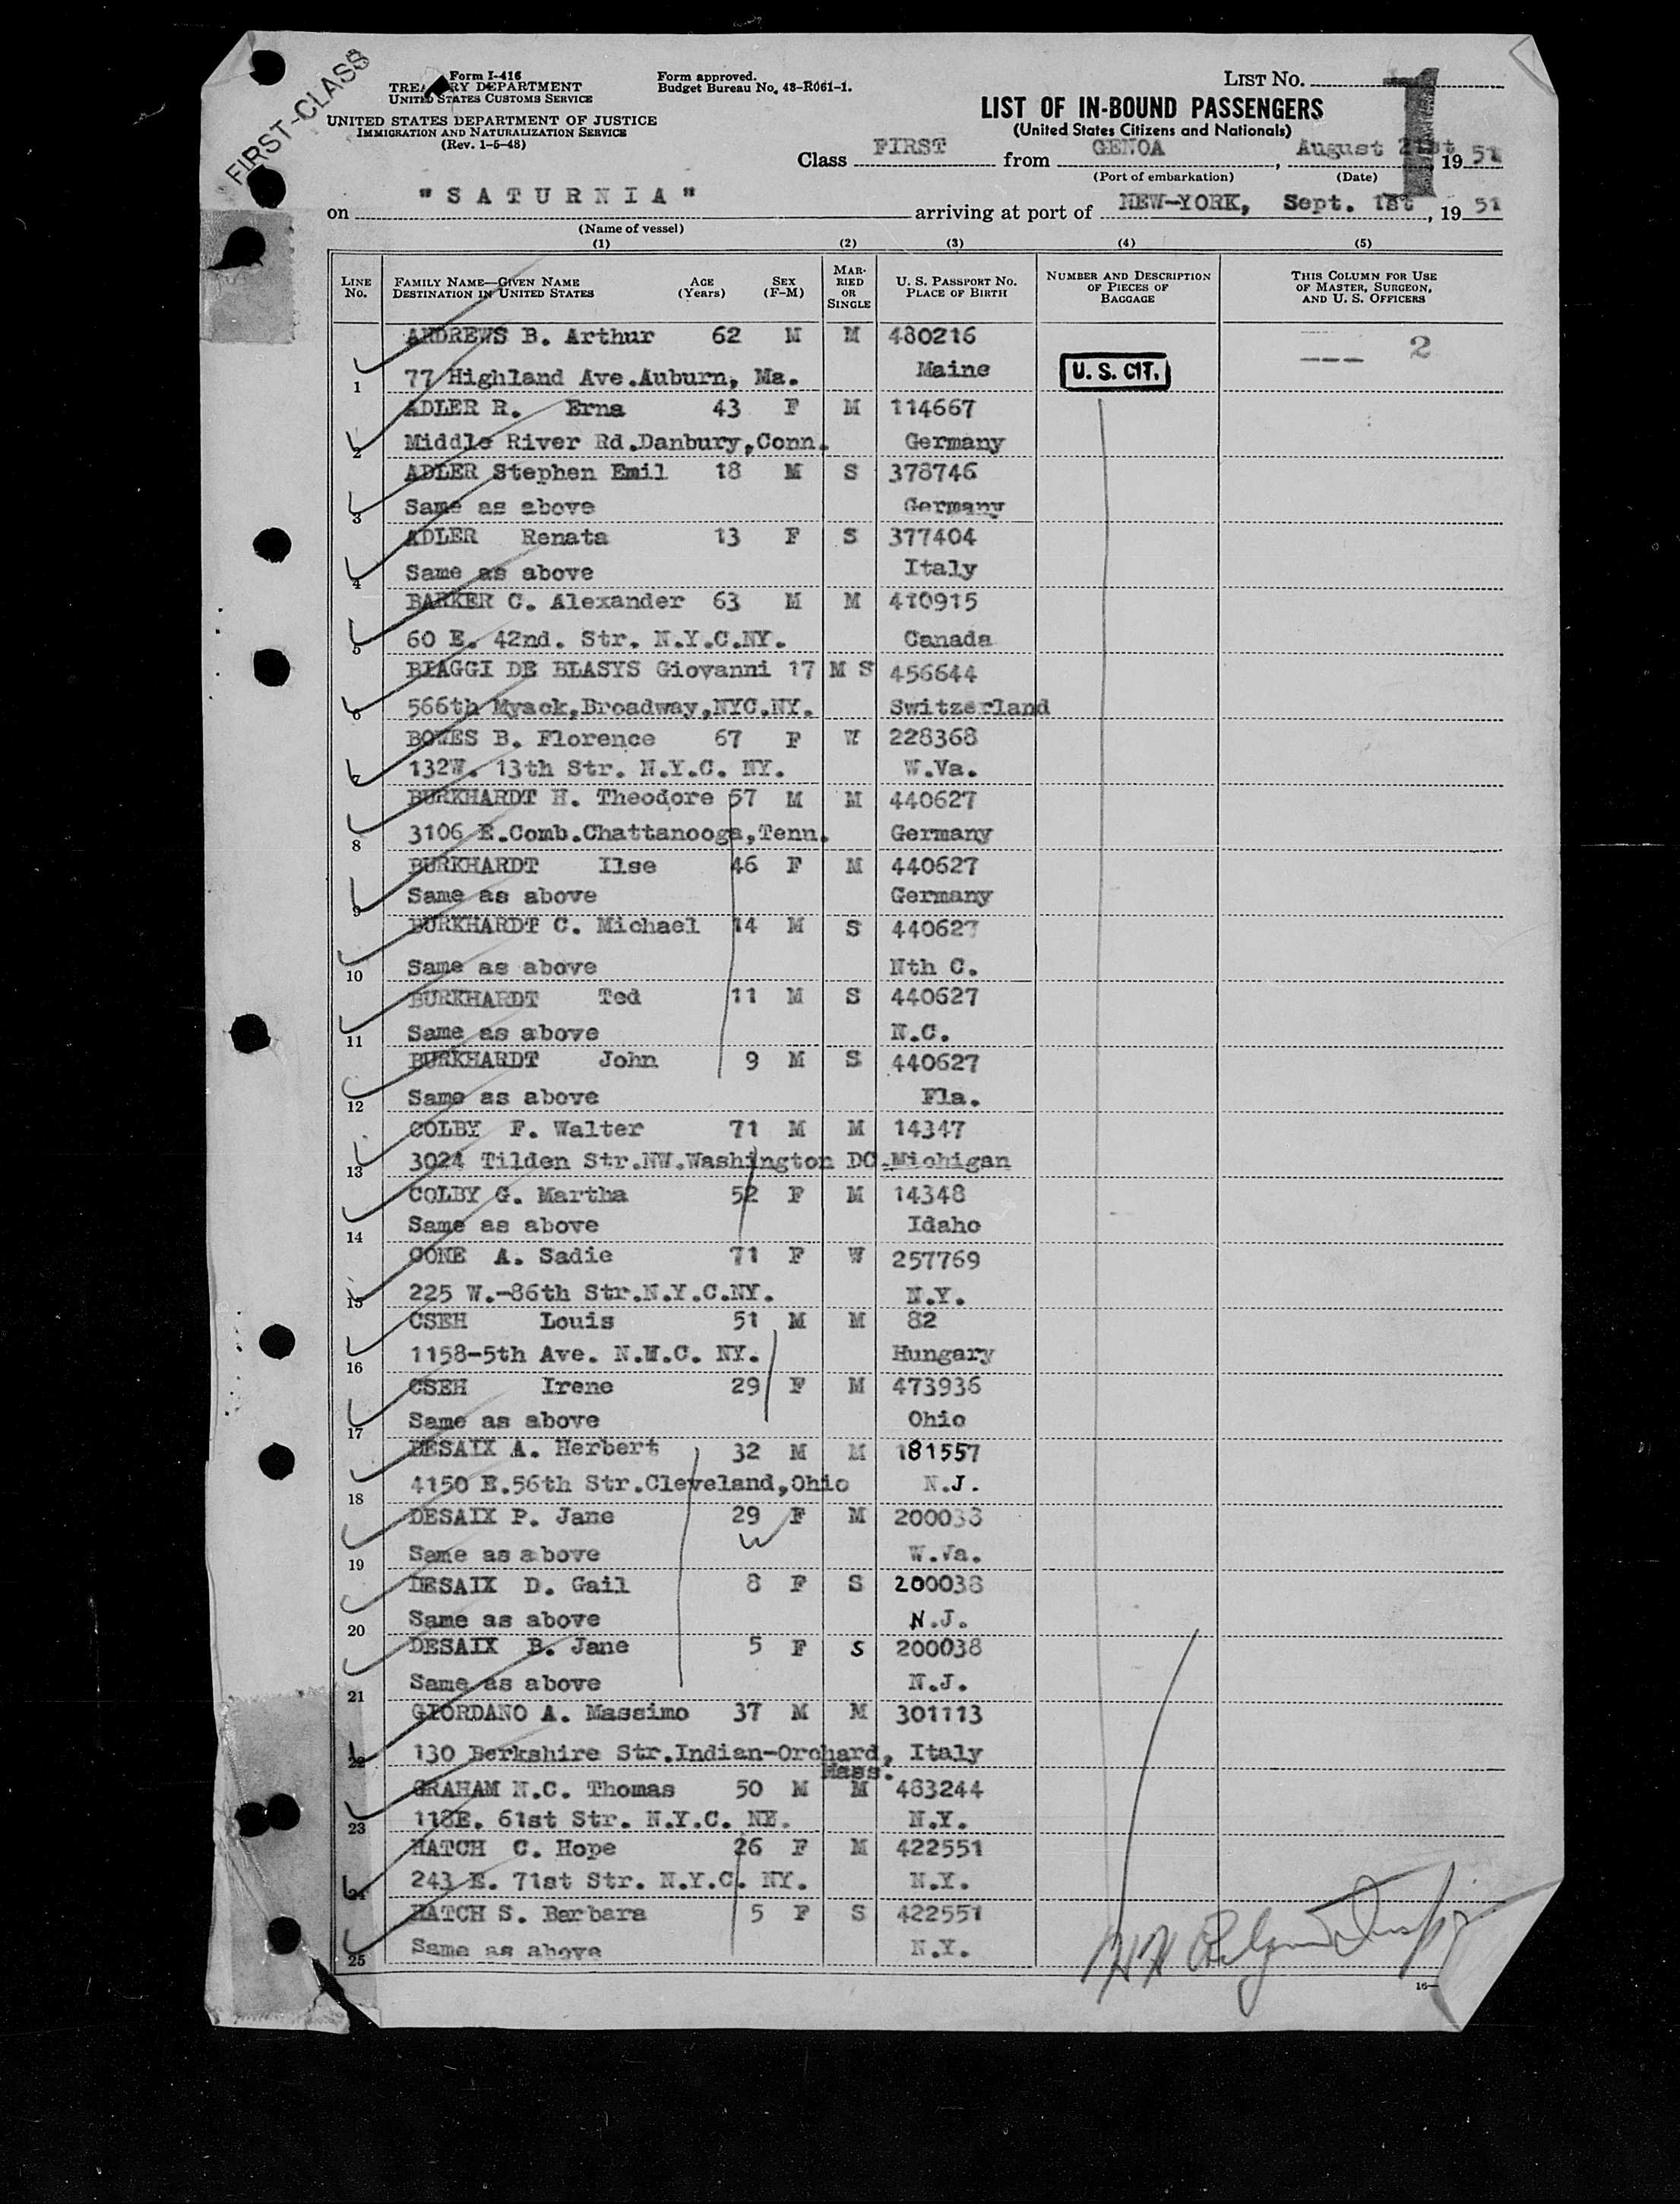 FIRST-CLASS
Form I-416
TREASURY DEPARTMENT
UNITED STATES CUSTOMS SERVICE
UNITED STATES DEPARTMENT OF JUSTICE
IMMIGRATION AND NATURALIZATION SERVICE
(Rev. 1-5-48)
Form approved.
Budget Bureau No. 48-R061-1.
LIST NO. 1
LIST OF IN-BOUND PASSENGERS
(United States Citizens and Nationals)
Class FIRST from GENOA, August 21st, 19 51
(Port of embarkation) (Date)
on "SATURNIA" arriving at port of NEW-YORK, Sept. 1st, 19 51
(Name of vessel)
(1) (2) (3) (4) (5)
LINE NO. FAMILY NAME—GIVEN NAME DESTINATION IN UNITED STATES AGE (Years) SEX (F-M) MARRIED OR SINGLE U. S. PASSPORT NO. PLACE OF BIRTH NUMBER AND DESCRIPTION OF PIECES OF BAGGAGE THIS COLUMN FOR USE OF MASTER, SURGEON, AND U. S. OFFICERS
ANDREWS B. Arthur 62 M M 480216 --- 2
1 77 Highland Ave.Auburn, Ma. Maine U. S. CIT.
ADLER R. Erna 43 F M 114667
2 Middle River Rd.Danbury,Conn. Germany
ADLER Stephen Emil 18 M S 378746
3 Same as above Germany
ADLER Renata 13 F S 377404
4 Same as above Italy
BARKER C. Alexander 63 M M 410915
5 60 E. 42nd. Str. N.Y.C.NY. Canada
BIAGGI DE BLASYS Giovanni 17 M S 456644
6 566th Myack,Broadway,NYC.NY. Switzerland
BOWES B. Florence 67 F W 228368
7 132W. 13th Str. N.Y.C. NY. W.Va.
BURKHARDT H. Theodore 57 M M 440627
8 3106 E.Comb.Chattanooga,Tenn. Germany
BURKHARDT Ilse 46 F M 440627
9 Same as above Germany
BURKHARDT C. Michael 14 M S 440627
10 Same as above Nth C.
BURKHARDT Ted 11 M S 440627
11 Same as above N.C.
BURKHARDT John 9 M S 440627
12 Same as above Fla.
COLBY F. Walter 71 M M 14347
13 3024 Tilden Str.NW.Washington DC.Michigan
COLBY G. Martha 52 F M 14348
14 Same as above Idaho
CONE A. Sadie 71 F W 257769
15 225 W.-86th Str.N.Y.C.NY. N.Y.
CSEH Louis 51 M M 82
16 1158-5th Ave. N.W.C. NY. Hungary
CSEH Irene 29 F M 473936
17 Same as above Ohio
DESAIX A. Herbert 32 M M 181557
18 4150 E.56th Str.Cleveland,Ohio N.J.
DESAIX P. Jane 29 F M 200038
19 Same as above W.Va.
DESAIX D. Gail 8 F S 200038
20 Same as above N.J.
DESAIX B. Jane 5 F S 200038
21 Same as above N.J.
GIORDANO A. Massimo 37 M M 301113
22 130 Berkshire Str.Indian-Orchard, Italy
Mass.
GRAHAM N.C. Thomas 50 M M 483244
23 118E. 61st Str. N.Y.C. NE. N.Y.
HATCH C. Hope 26 F M 422551
24 243 E. 71st Str. N.Y.C. NY. N.Y.
HATCH S. Barbara 5 F S 422551
25 Same as above N.Y.
16—